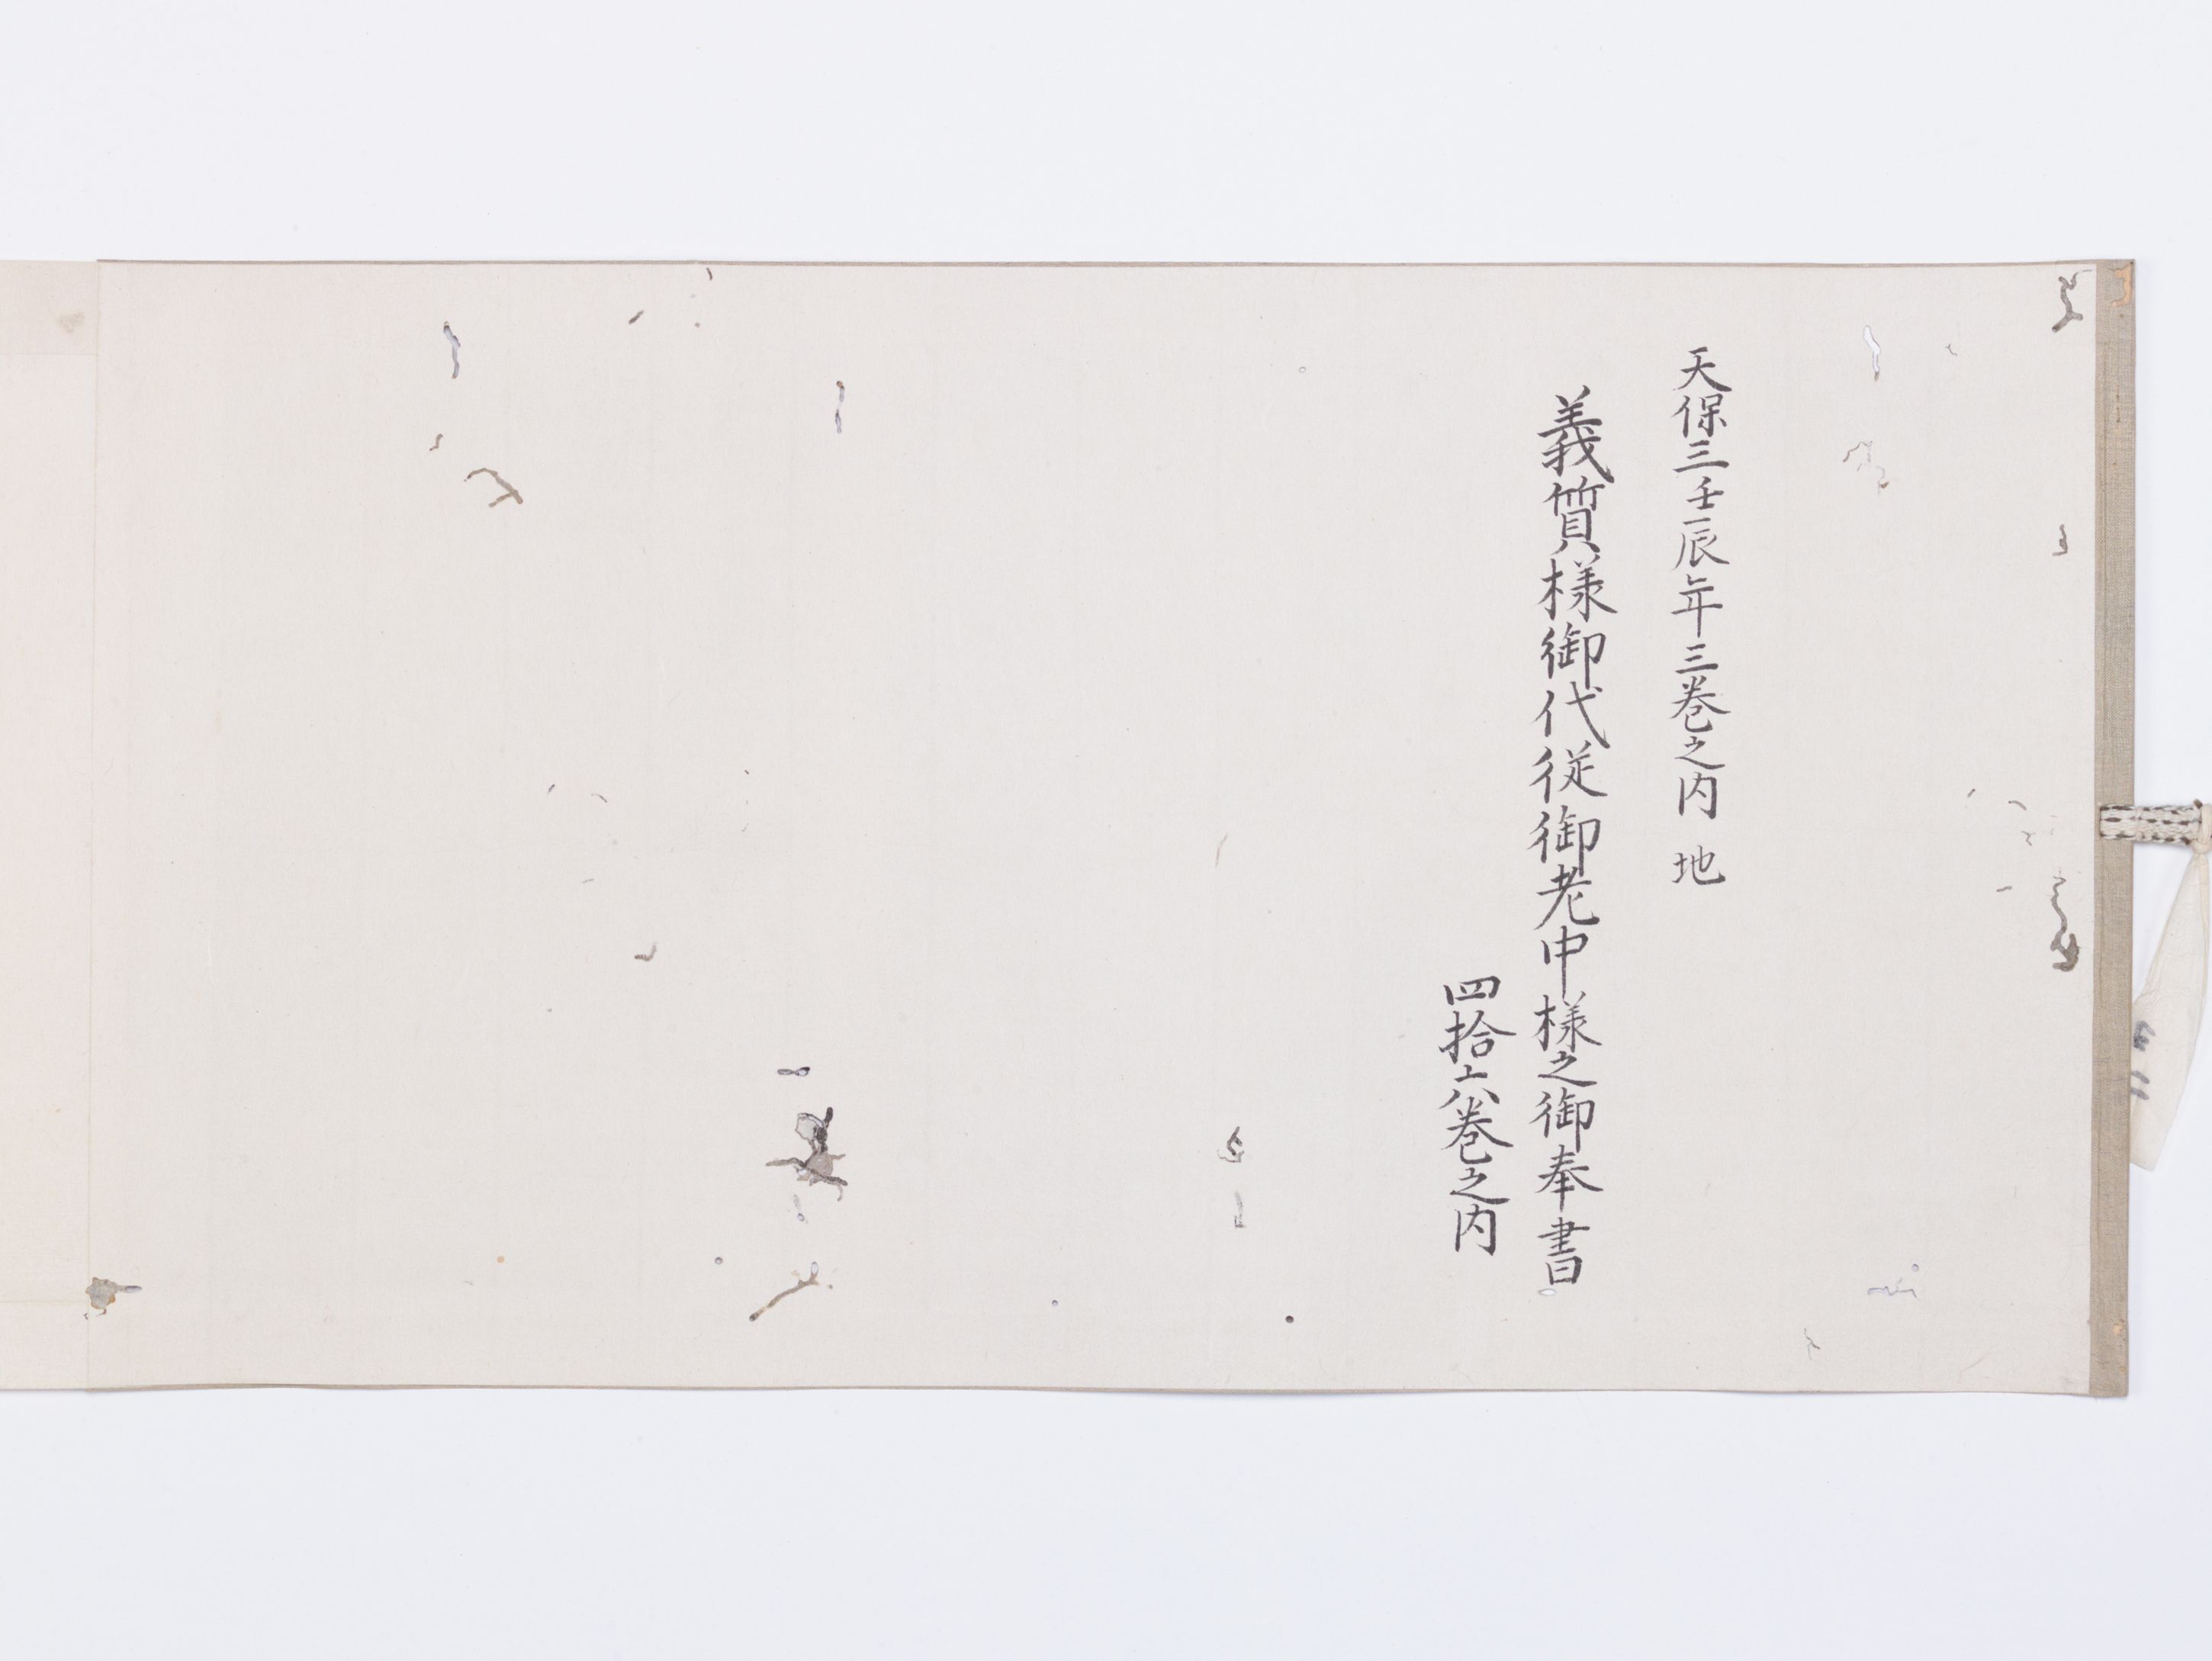 天保三壬辰年三巻之内 地
義質様御代従御老中様之御奉書
四拾六巻之内